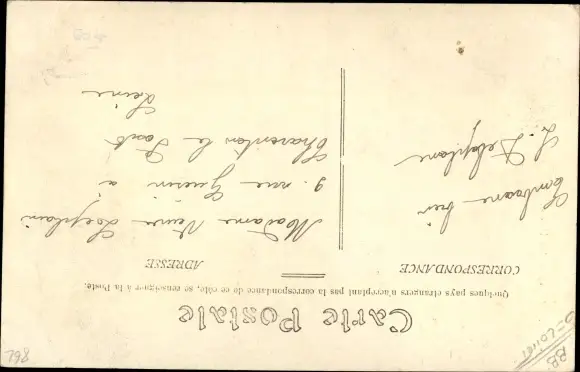 Carte Postale
Quelques pays étrangers n'acceptant pas la correspondance de ce côté, se renseigner à la Poste.
CORRESPONDANCE
ADRESSE
L. Delaplane
Madame Veuve
9. rue Guérin à
Charenton le Pont
Seine
798
BB